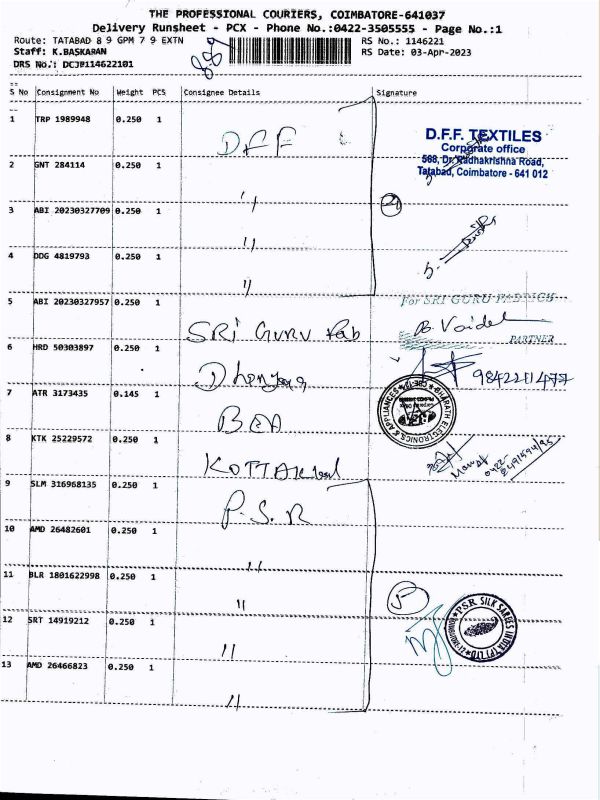 THE PROFESSIONAL COURIERS, COIMBATORE-641037
Delivery Runsheet - PCX - Phone No.:0422-3505555 - Page No.:1
Route: TATABAD 8 9 GPM 7 9 EXTN
RS No.: 1146221
Staff: K.BASKARAN
RS Date: 03-Apr-2023
DRS No.: DCJB114622101
S No Consignment No Weight PCS Consignee Details Signature
1 TRP 1989948 0.250 1 DFF
D.F.F. TEXTILES
Corporate office
568, Dr. Radhakrishna Road,
Tatabad, Coimbatore - 641 012
2 GNT 284114 0.250 1 "
3 ABI 20230327709 0.250 1 "
4 DDG 4819793 0.250 1 "
5 ABI 20230327957 0.250 1 SRI GURU Fab
For SRI GURU FABRICH
PARTNER
6 HRD 50303897 0.250 1
9842211477
7 ATR 3173435 0.145 1 BEA
BHARATH ELECTRONICS & APPLIANCES
8 KTK 25229572 0.250 1
9 SLM 316968135 0.250 1 P.S.R
10 AMD 26482601 0.250 1 "
11 BLR 1801622998 0.250 1 "
5
12 SRT 14919212 0.250 1 "
P.S.R. SILK SAREES INDIA (P) LTD
13 AMD 26466823 0.250 1 "